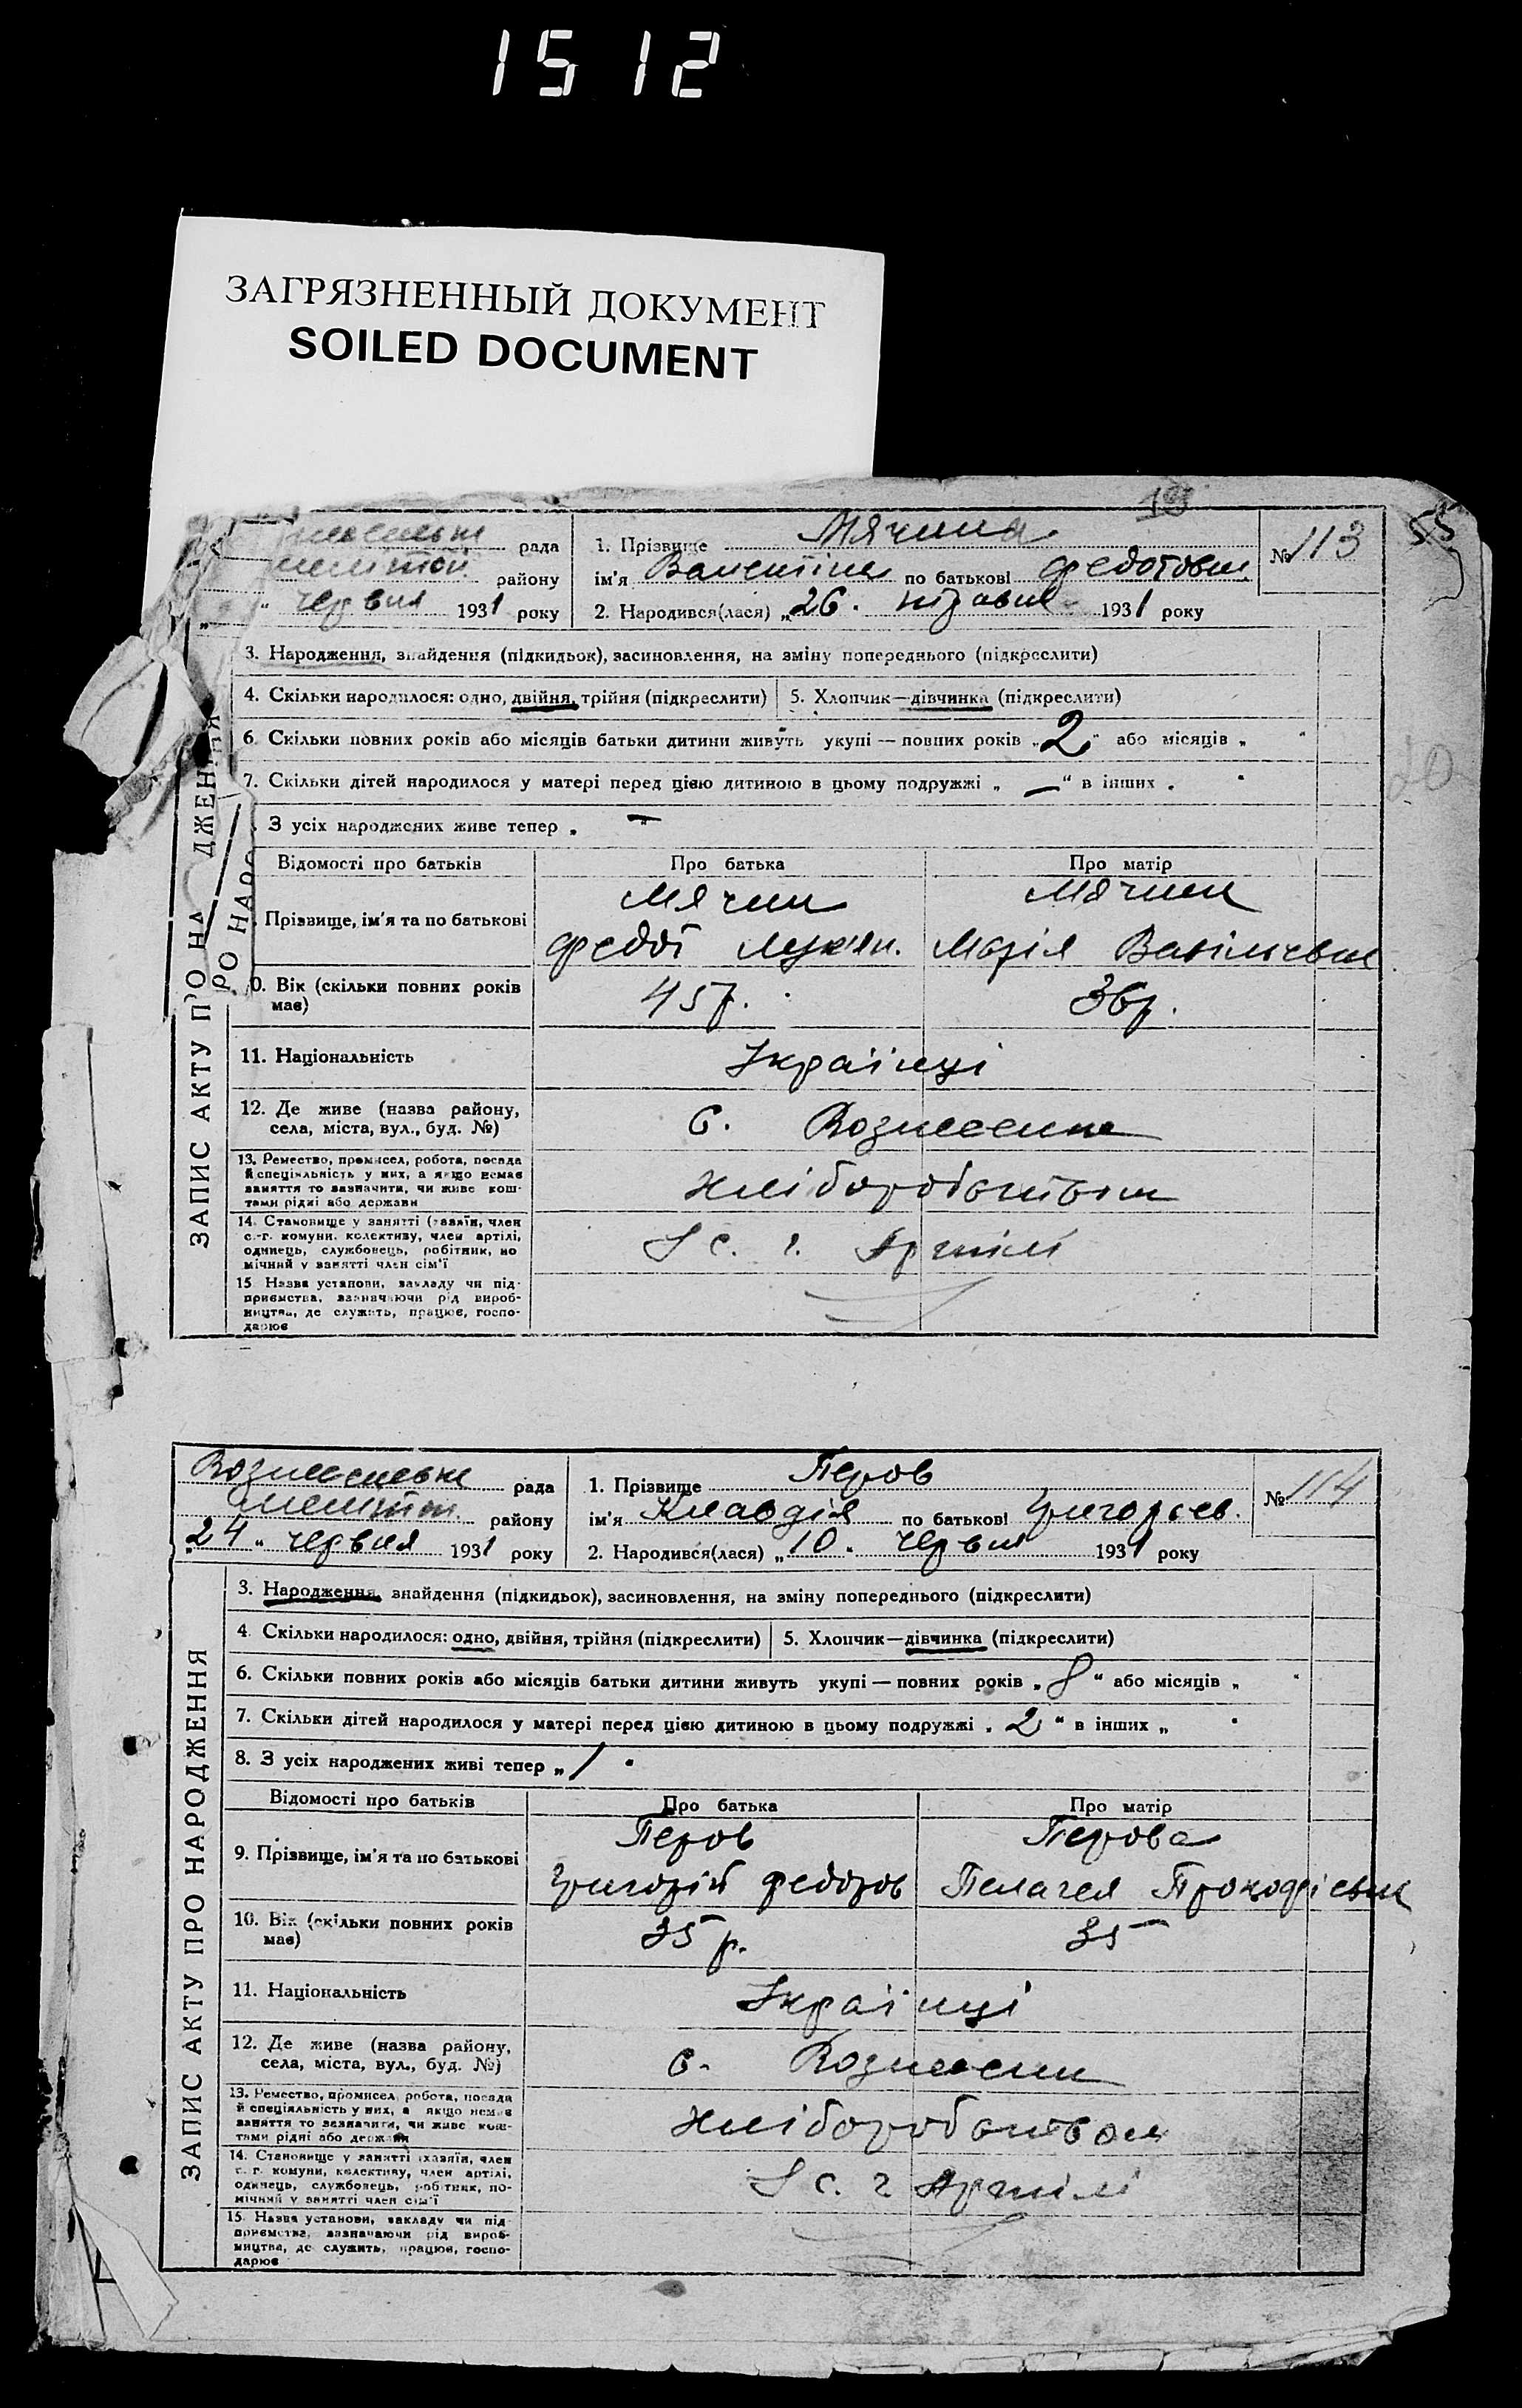 1512
ЗАГРЯЗНЕННЫЙ ДОКУМЕНТ
SOILED DOCUMENT
55
рада
району
червня 1931 року
1. Прізвище Мячина
ім'я Валентіна по батькові Федотовна
2. Народився(лася) „26" травня 1931 року
№ 113
ЗАПИС АКТУ ПРО НА ДЖЕННЯ
РО НАРО
3. Народження, знайдення (підкидьок), засиновлення, на зміну попереднього (підкреслити)
4. Скільки народилося: одно, двійня, трійня (підкреслити) 5. Хлопчик—дівчинка (підкреслити)
6. Скільки повних років або місяців батьки дитини живуть укупі — повних років „2" або місяців „ "
7. Скільки дітей народилося у матері перед цією дитиною в цьому подружжі „ — " в інших „ "
. З усіх народжених живе тепер „ — "
Відомості про батьків Про батька Про матір
. Прізвище, ім'я та по батькові
Мячин
Федот Лукян.
Мячин
Марія Васільевна
0. Вік (скільки повних років має) 45 р. 36 р.
11. Національність Українці
12. Де живе (назва району, села, міста, вул., буд. №) с. Вознесенка
13. Ремество, промисел, робота, посада й спеціяльність у них, а якщо немає заняття то зазначити, чи живе коштами рідні або держави
хліборобством
14. Становище у занятті (хазяїн, член с.-г. комуни, колективу, член артілі, одинець, службовець, робітник, помічний у занятті член сім'ї
с. г. Артілі
15. Назва установи, закладу чи підприємства, зазначаючи рід виробництва, де служить, працює, господарює
Вознесенська рада
району
„24" червня 1931 року
1. Прізвище Перов
ім'я Клавдія по батькові Григорьев.
2. Народився(лася) „10" червня 1931 року
№ 114
ЗАПИС АКТУ ПРО НАРОДЖЕННЯ
3. Народження, знайдення (підкидьок), засиновлення, на зміну попереднього (підкреслити)
4. Скільки народилося: одно, двійня, трійня (підкреслити) 5. Хлопчик—дівчинка (підкреслити)
6. Скільки повних років або місяців батьки дитини живуть укупі — повних років „8" або місяців „ "
7. Скільки дітей народилося у матері перед цією дитиною в цьому подружжі „2" в інших „ "
8. З усіх народжених живі тепер „1"
Відомості про батьків Про батька Про матір
9. Прізвище, ім'я та по батькові
Перов
Григорій Федоров
Перова
Пелагея Прокофієвна
10. Вік (скільки повних років має) 35 р. 35
11. Національність Українці
12. Де живе (назва району, села, міста, вул., буд. №) с. Вознесенка
13. Ремество, промисел, робота, посада й спеціяльність у них, а якщо немає заняття то зазначити, чи живе коштами рідні або держави
хліборобством
14. Становище у занятті (хазяїн, член с. г. комуни, колективу, член артілі, одинець, службовець, робітник, помічний у занятті член сім'ї
с. г. Артілі
15. Назва установи, закладу чи підприємства, зазначаючи рід виробництва, де служить, працює, господарює